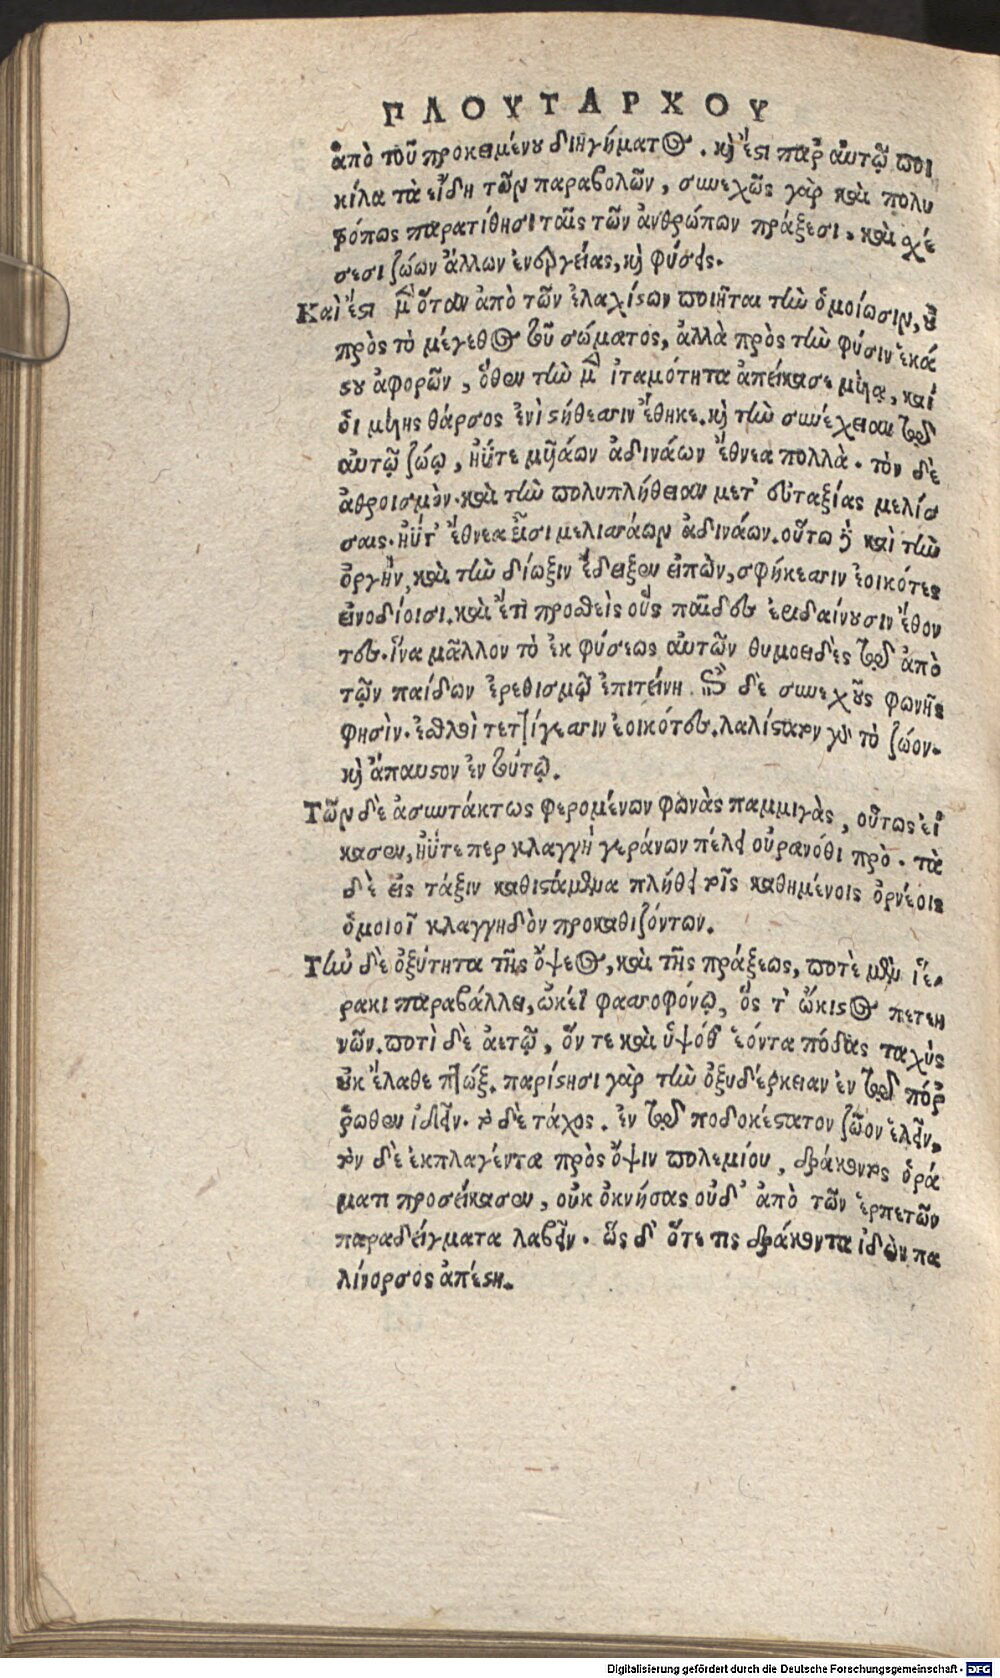 ΠΛΟΥΤΑΡΧΟΥ
ἀπὸ τοῦ προκειμένου διηγήματος. καὶ ἔστι παρ' αὐτῷ ποι
κίλα τὰ εἴδη τῶν παραβολῶν, συνεχῶς γὰρ καὶ πολυ
τρόπως παρατίθησι ταῖς τῶν ἀνθρώπων πράξεσι, καὶ σχέ
σεσι ζώων ἄλλων ἐνεργείας, καὶ φύσεις.
Καὶ ἔστι μὲν ὅταν ἀπὸ τῶν ἐλαχίστων ποιῆται τὴν ὁμοίωσιν, οὐ
πρὸς τὸ μέγεθος τοῦ σώματος, ἀλλὰ πρὸς τὴν φύσιν ἑκά
στου ἀφορῶν, ὅθεν τὴν μὲν ἰταμότητα ἀπείκασε μύιᾳ, καί
ὁι μύιης θάρσος ἐνὶ στήθεσσιν ἔθηκε. καὶ τὴν συνέχειαν τῷ
αὐτῷ ζώῳ, ἠΰτε μυϊάων ἀδινάων ἔθνεα πολλὰ. τὸν δὲ
ἀθροισμὸν. καὶ τὴν πολυπλήθειαν μετ' εὐταξίας μελίσ
σαις. ἠΰτ' ἔθνεα εἶσι μελισσάων ἀδινάων. οὕτω δὲ καὶ τὴν
ὀργὴν, καὶ τὴν δίωξιν ἔδειξεν εἰπὼν, σφήκεσσιν ἐοικότες
εἰνοδίοισι. καὶ ἔτι προσθεὶς οὓς παῖδες ἐριδαίνουσιν ἔθον
τες. ἵνα μᾶλλον τὸ ἐκ φύσεως αὐτῶν θυμοειδὲς τῷ ἀπὸ
τῶν παίδων ἐρεθισμῷ ἐπιτείνῃ. ἐπὶ δὲ συνεχοῦς φωνῆς
φησὶν. ἐσθλοὶ τετζίγεσσιν ἐοικότες. λαλίστατον γὰρ τὸ ζώον.
καὶ ἄπαυστον ἐν τούτῳ.
Τῶν δὲ ἀσυντάκτως φερομένων φωνὰς παμμιγὰς, οὕτως εἴ
κασεν, ἠΰτε περ κλαγγὴ γεράνων πέλει οὐρανόθι πρὸ. τὰ
δὲ εἰς τάξιν καθιστάμενα πλήθει τοῖς καθημένοις ὀρνέοις
ὁμοιοῖ κλαγγηδὸν προκαθιζόντων.
Τὴν δὲ ὀξύτητα τῆς ὄψεος, καὶ τῆς πράξεως, ποτὲ μὲν ἱέ-
ρακι παραβάλλει, ὠκέϊ φασσοφόνῳ, ὅς τ' ὤκιστος πετεη
νῶν. ποτὶ δὲ ἀετῷ, ὅν τε καὶ ὑψόθ' ἐόντα πόδας ταχὺς
οὐκ ἔλαθε πτώξ. παρίστησι γὰρ τὴν ὀξυδέρκειαν ἐν τῷ πόρ
ῥωθεν ἰδεῖν. τὸ δὲ τάχος. ἐν τῷ ποδοκέστατον ζῶον ἑλεῖν.
τὸν δὲ ἐκπλαγέντα πρὸς ὄψιν πολεμίου, δράκοντος ὁρά
ματι προσείκασεν, οὐκ ὀκνήσας οὐδ' ἀπὸ τῶν ἑρπετῶν
παραδείγματα λαβεῖν. ὣς δ' ὅτε τις δράκοντα ἰδὼν πα
λίνορσος ἀπέστη.
Digitalisierung gefördert durch die Deutsche Forschungsgemeinschaft - DFG